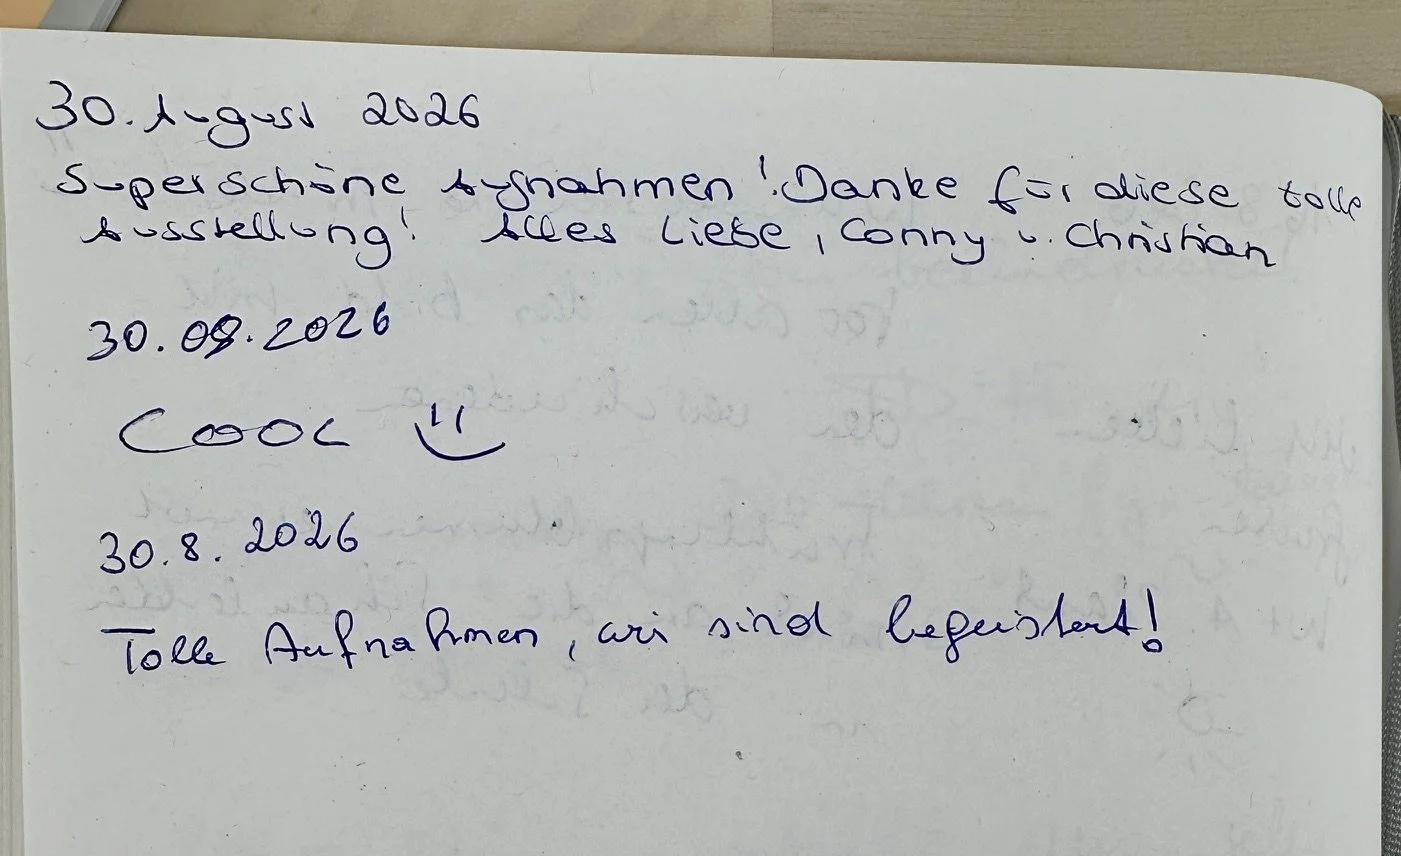 30. August 2026
Superschöne Aufnahmen! Danke für diese tolle
Ausstellung! Alles Liebe, Conny u. Christian
30.08.2026
COOL :)
30.8.2026
Tolle Aufnahmen, wir sind begeistert!